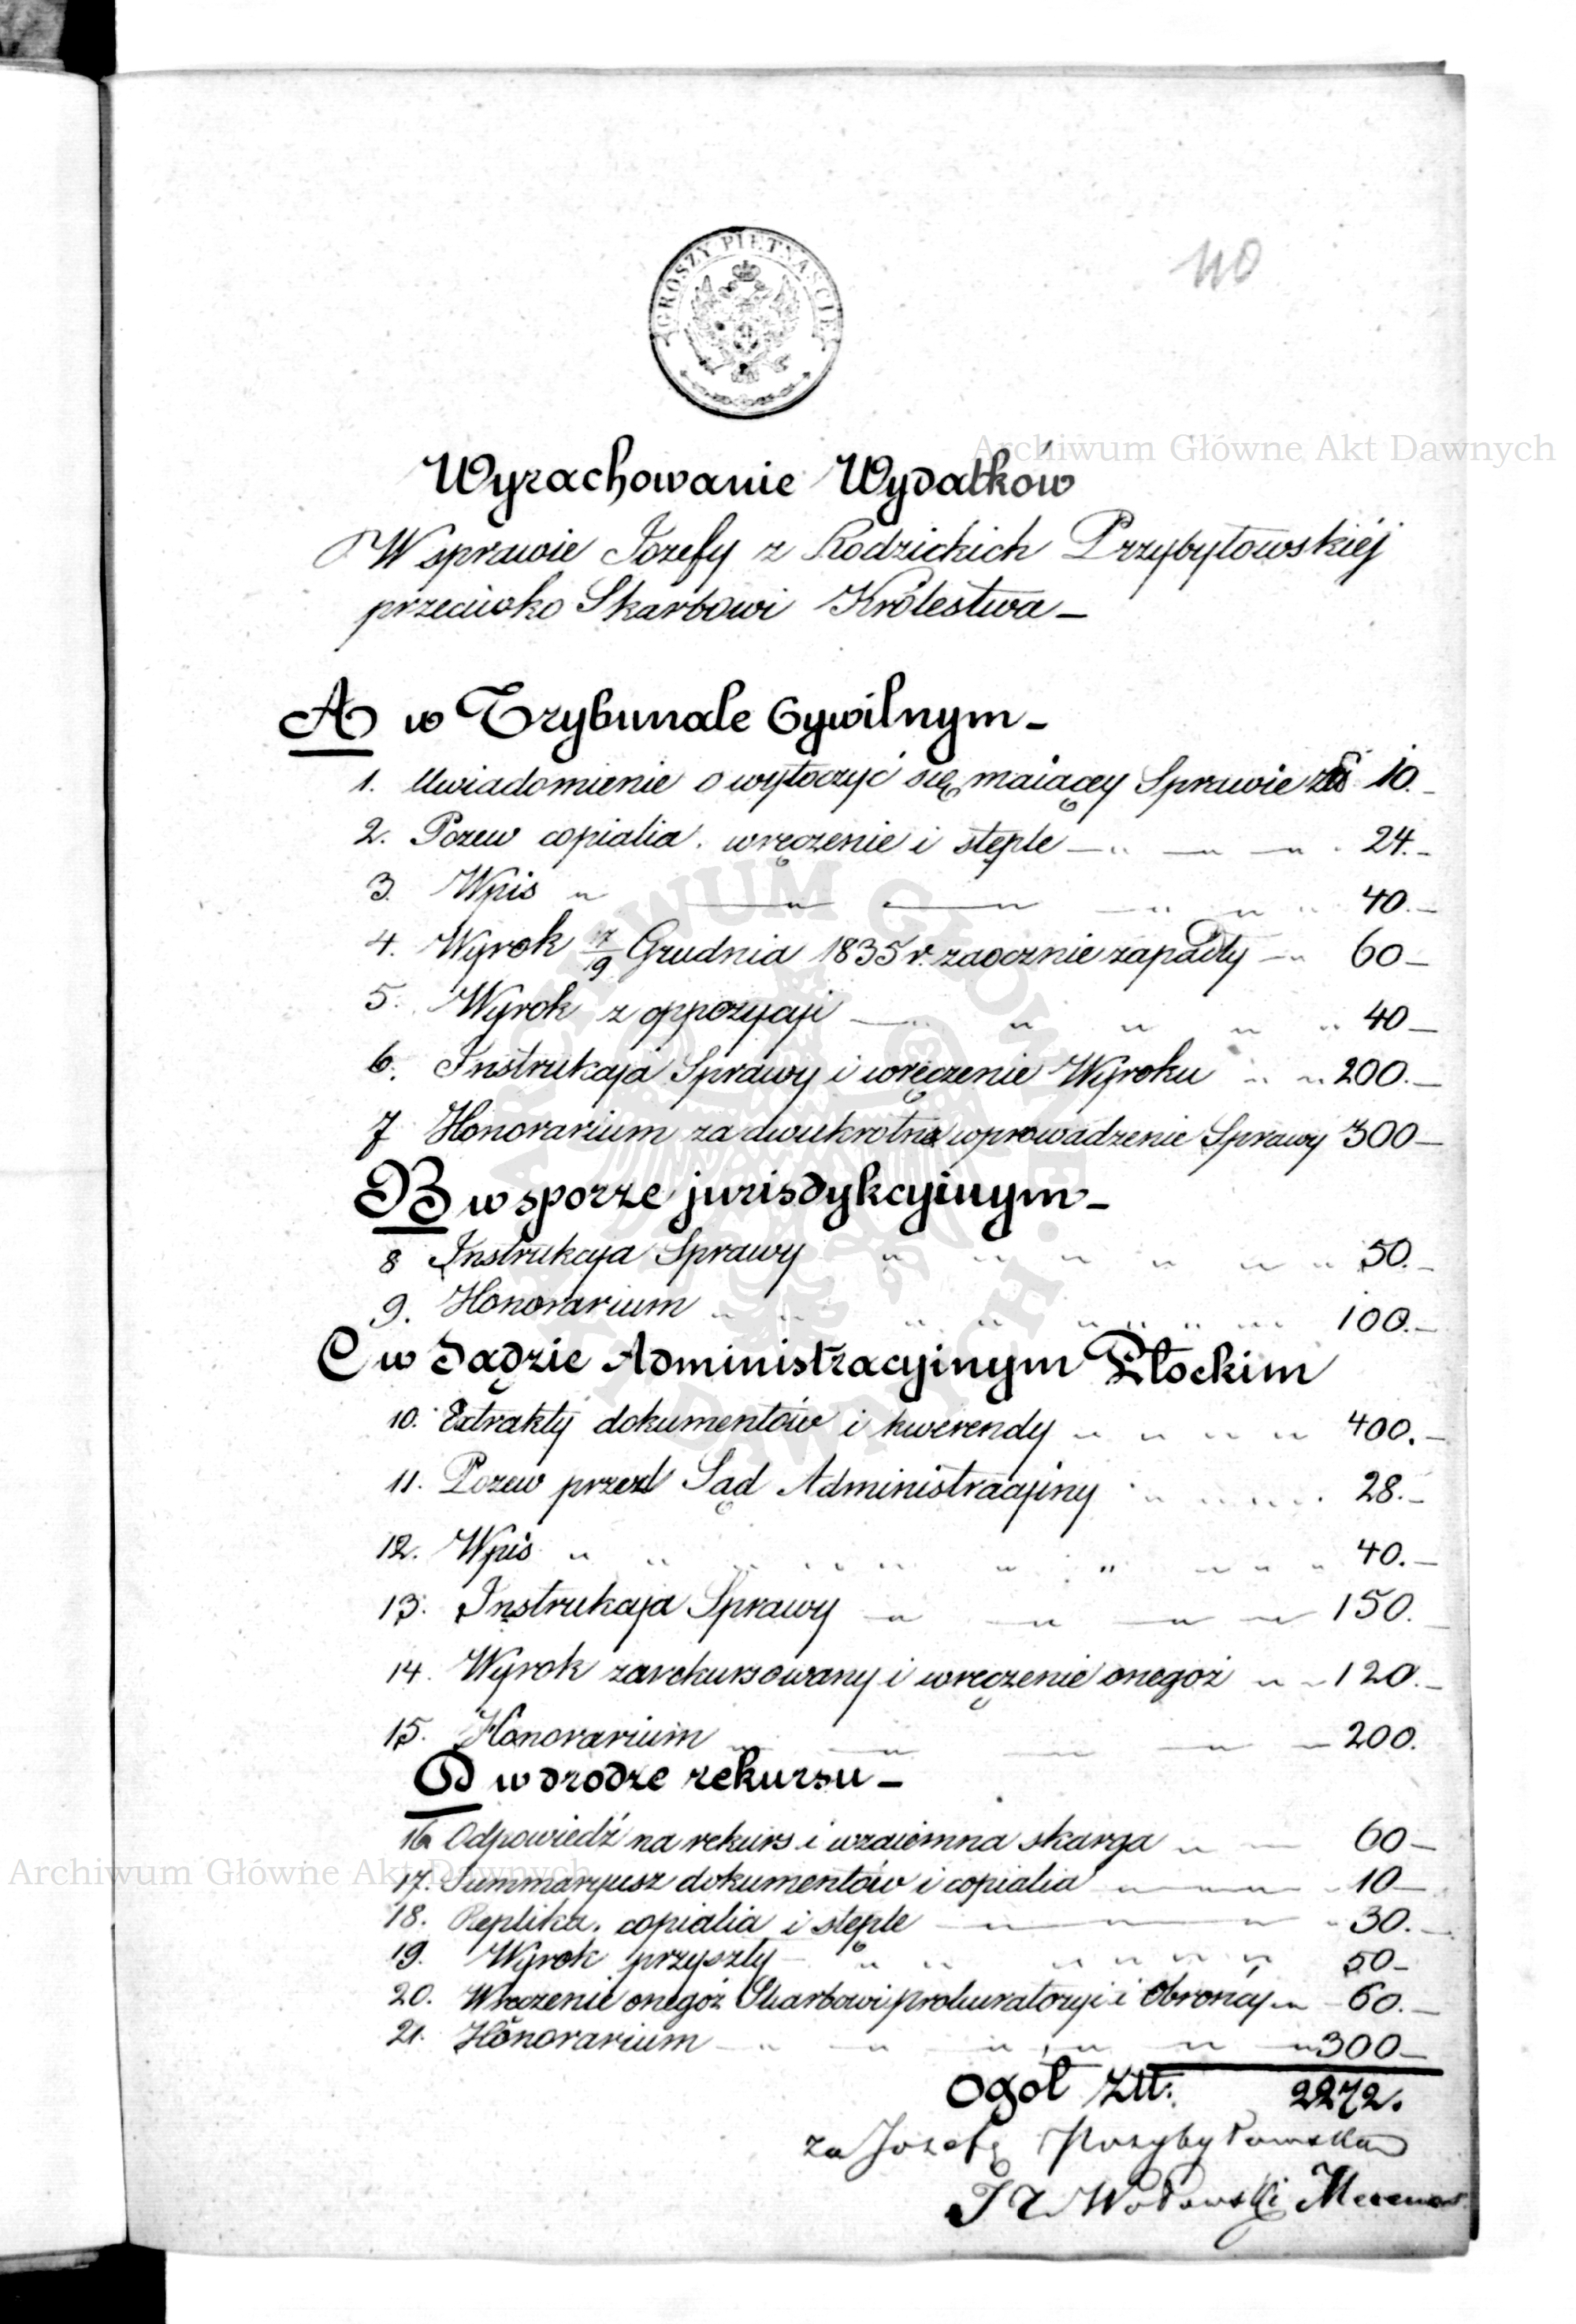 GROSZY PIETNAŚCIE
110
Archiwum Główne Akt Dawnych
Wyrachowanie Wydatków
W sprawie Jozefy z Rodzickich Przybyłowskiéj
przeciwko Skarbowi Królestwa —
A w Trybunale Cywilnym —
1. Uwiadomienie o wytoczyć się maiącey Sprawie złł 10. —
2. Pozew copialia. wręczenie i stęple — „ — „ — „ . 24. —
3. Wpis „ — „ — „ — „ „ „ 40. —
4. Wyrok 7/19 Grudnia 1835 r. zaocznie zapadły — „ 60 —
5. Wyrok z oppozycyi — „ „ „ „ „ 40 —
6. Instrukcya Sprawy i wręczenie Wyroku „ „ 200. —
7 Honorarium za dwukrotne wprowadzenie Sprawy 300 —
B w sporze jurisdykcyinym —
8 Instrukcya Sprawy „ „ „ „ „ „ 50. —
9. Honorarium „ „ „ „ „ „ „ „ 100. —
C w Sądzie Administracyinym Płockim
10. Extrakty dokumentów i kwerendy „ „ „ „ 400. —
11. Pozew przed Sąd Administracyiny „ „ „ „ . 28. —
12. Wpis „ „ „ „ „ „ „ „ „ „ „ 40. —
13. Instrukcya Sprawy — „ — „ — „ — „ 150. —
14. Wyrok zarekursowany i wręczenie onegoż „ „ 120. —
15. Honorarium „ — „ — „ — „ — 200.
D w drodze rekursu —
16 Odpowiedź na rekurs i wzaiemna skarga „ — 60 —
Archiwum Główne Akt Dawnych
17. Summaryusz dokumentów i copialia — „ — „ — „ 10 —
18. Replika. copialia i stęple — „ — „ — „ 30. —
19. Wyrok przyszły — „ „ „ „ „ „ „ 50 —
20. Wręczenie onegoż Skarbowi prokuratoryi i Obrońcy „ — 60. —
21. Honorarium — „ — „ „ „ „ „ 300 —
Ogół Złł. 2272.
za Jozefę Przybyłowską
Wołowski Mecenas